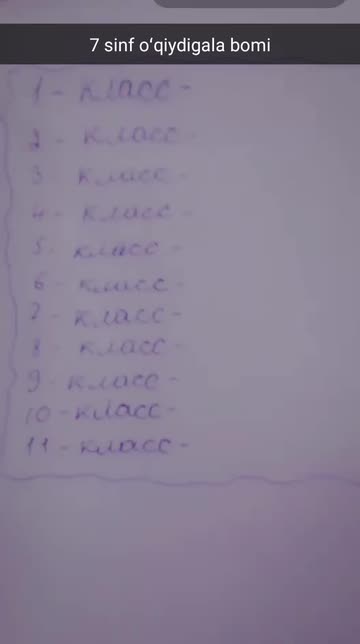 7 sinf oʻqiydigala bomi
1 - класс -
2 - класс
3 - класс -
4 - класс -
5 - класс -
6 - класс -
7 - класс -
8 - класс -
9 - класс -
10 - класс -
11 - класс -